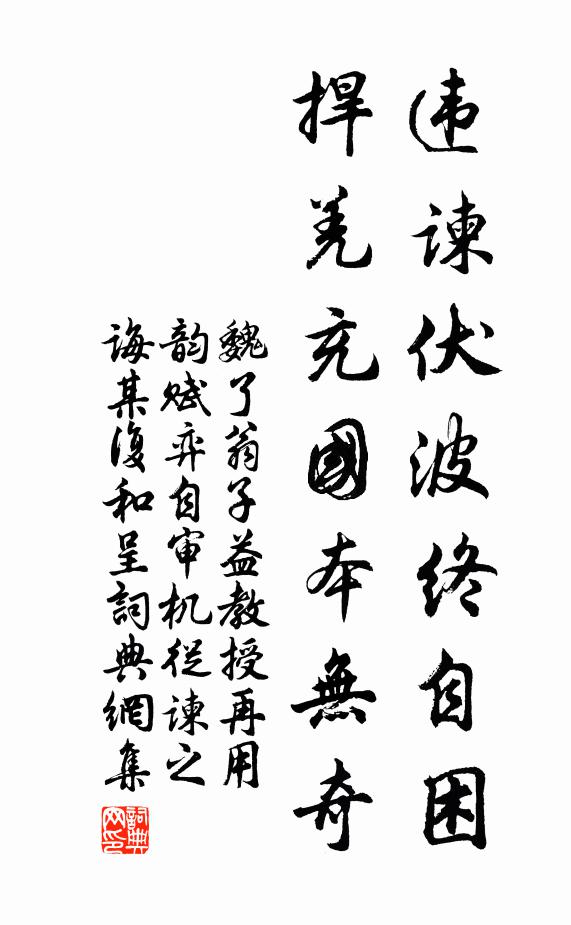 违諫伏波終自困
捍羌充國本無奇
魏了翁子益教授再用
韵赋弈自审机從諫之
诲某復和呈詞典網集
詞典网印